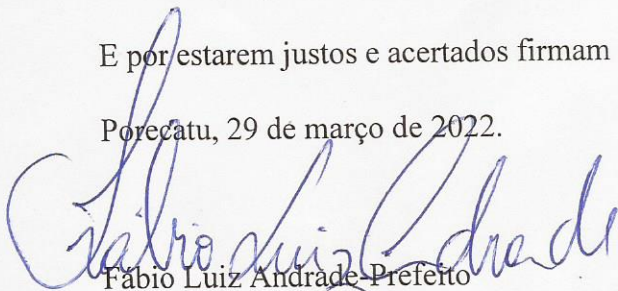 E por estarem justos e acertados firmam
Porecatu, 29 de março de 2022.
Fábio Luiz Andrade
Fábio Luiz Andrade-Prefeito